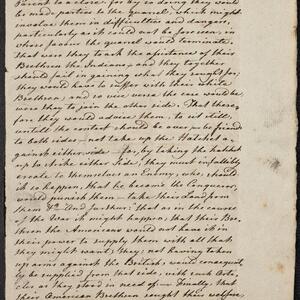 Parent to a close: for by so doing they would
be made parties to the quarrel, which might
involve them in difficulties and dangers,
particularly as it could not be foreseen, in
whose favour the quarrel would terminate.
That were they to ask the assistance of their
Brethren the Indians, and they together
should fail in gaining what they sought for,
they would have to suffer with their White
Brethren; and so vice versa the case would be
were they to join the other side. That there-
fore they would advise them, to sit still,
untill the contest should be over & be friends
to both sides — not take up the Hatchet a-
gainst either side: for, by taking the hatchet
up to strike either side, they must infallibly
create to themselves an Enemy, who, should
it so happen, that he became the Conqueror,
would punish them — take their land from
them &c. And further: that as in the course
of the War it might happen, that their Bre-
thren the Americans would not have it in
their power to supply them with all that
they might want; they, not having taken
up arms against the British, would consequent-
ly be supplied from that side, with such Arti-
cles as they stood in need of — Finally, that
their American Brethren sought their welfare,